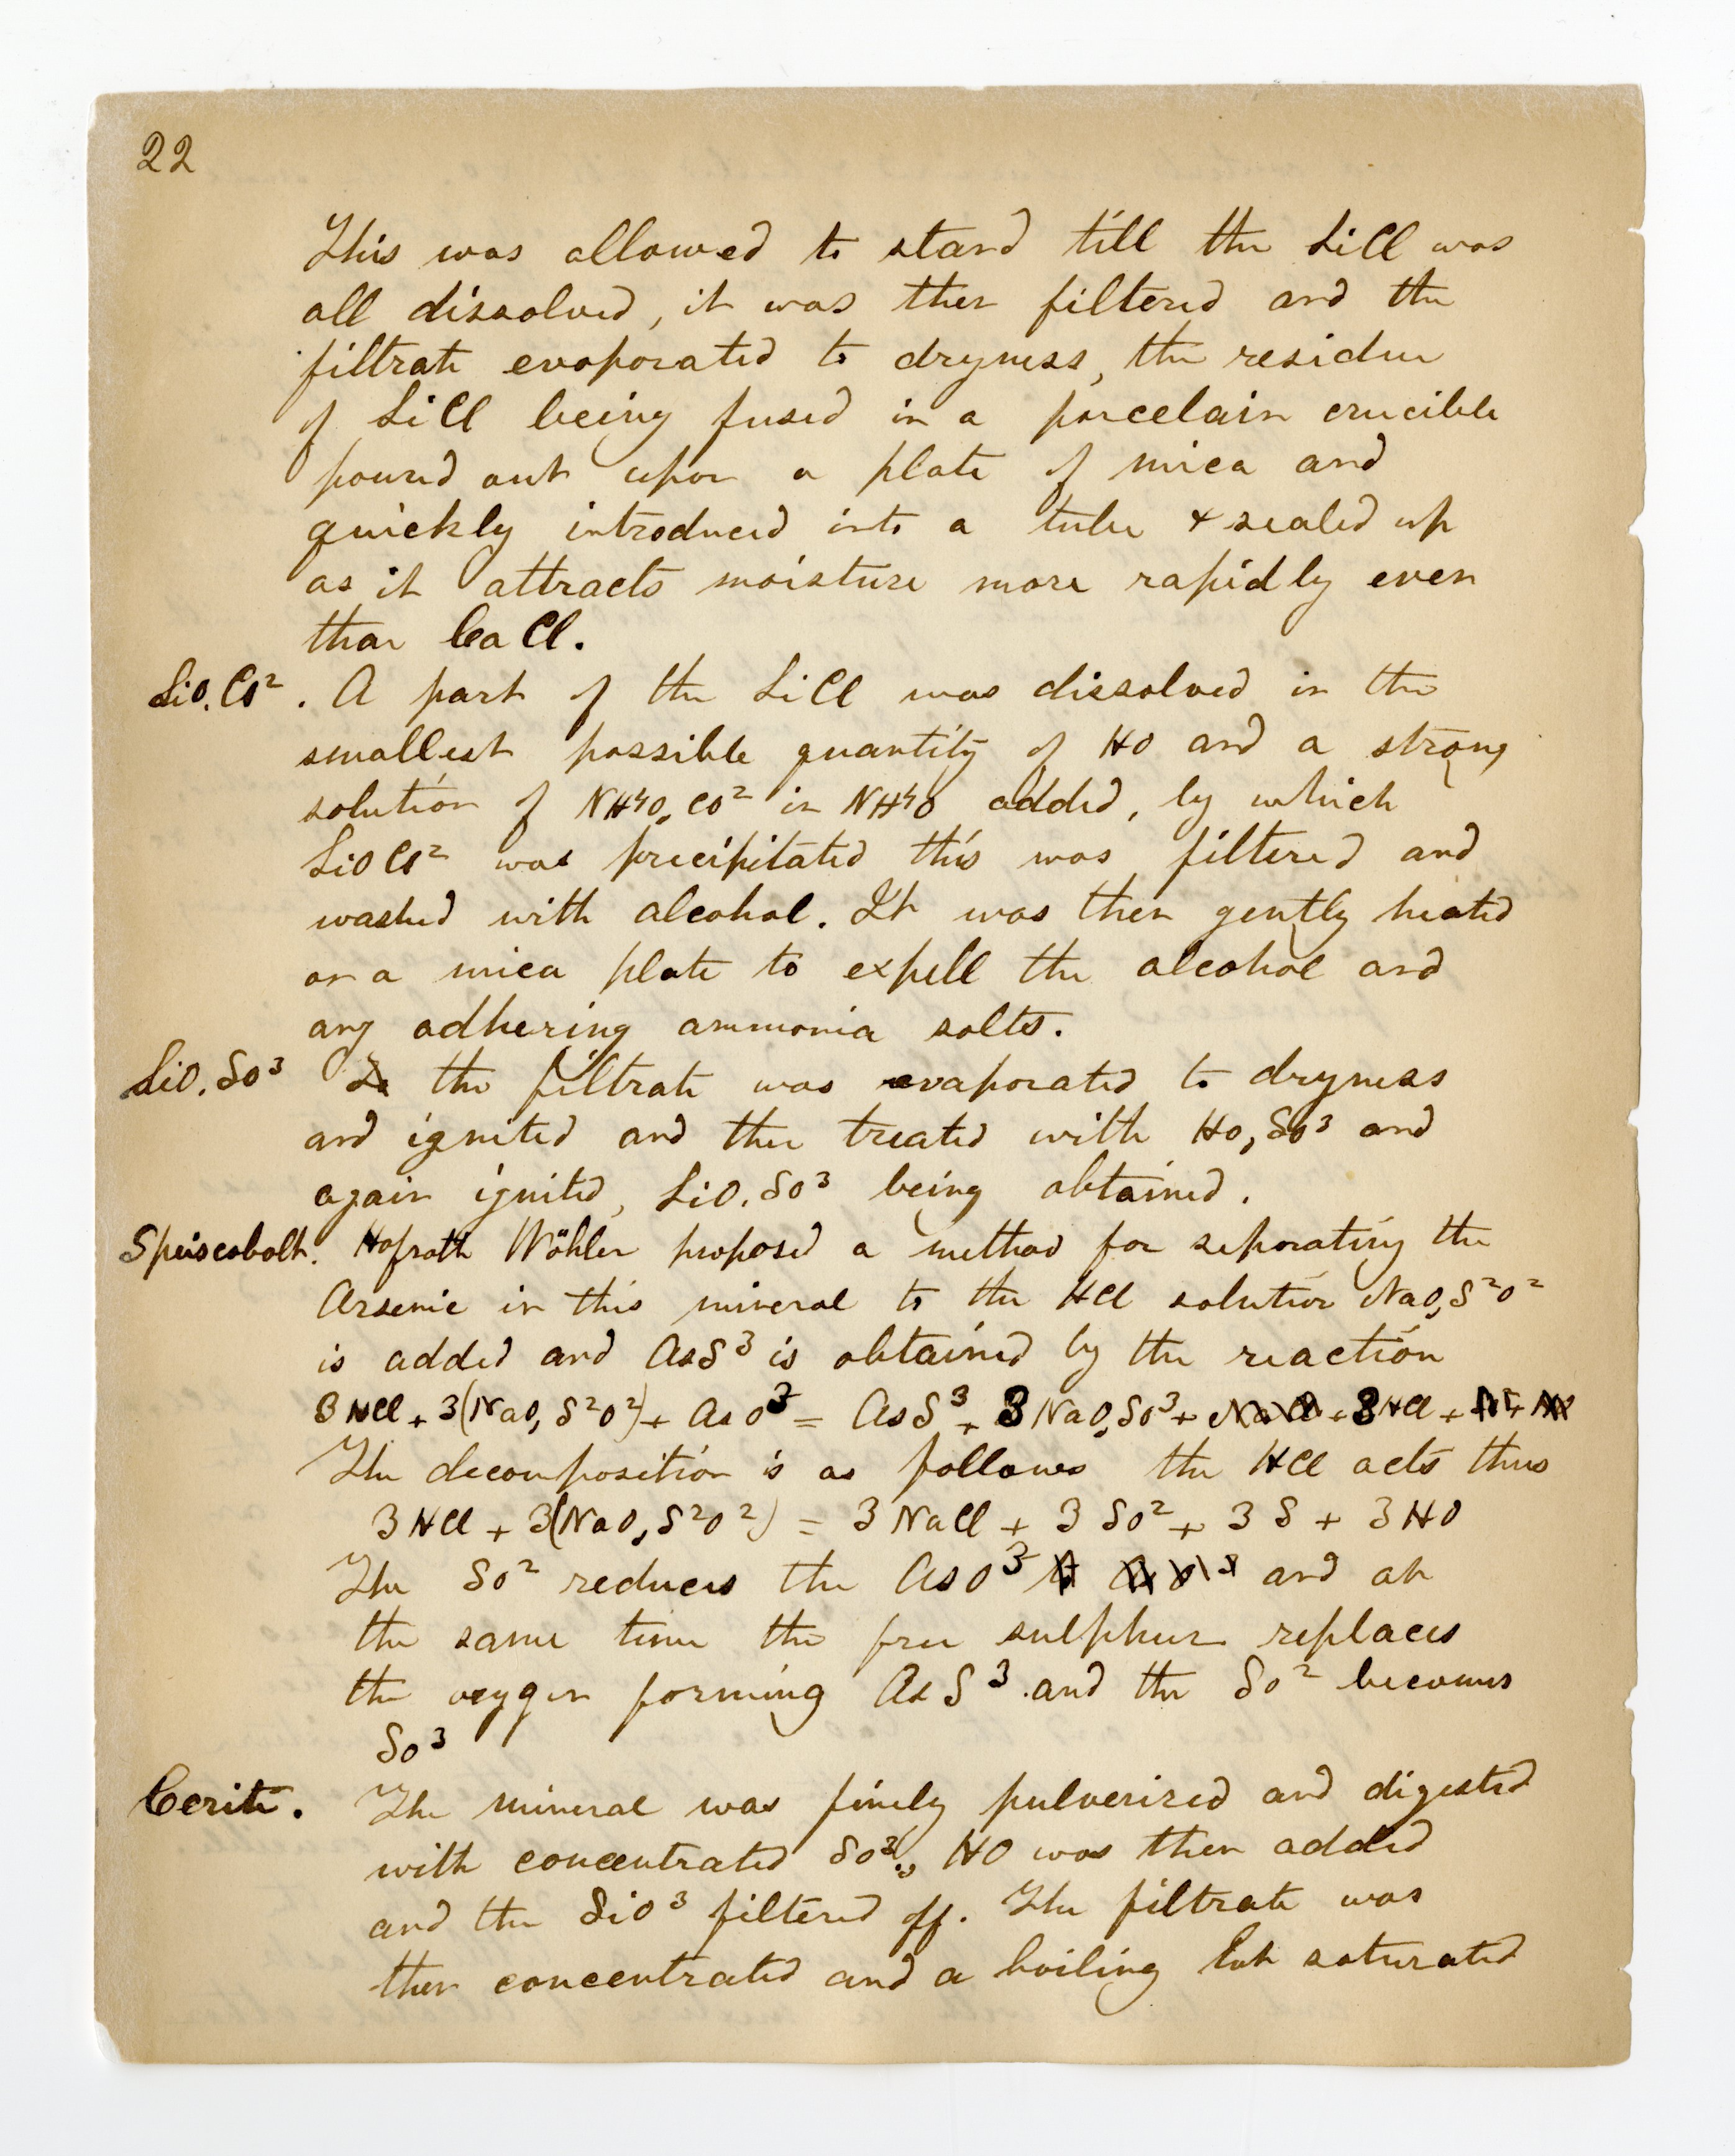 22
This was allowed to stand till the LiCl was
all dissolved, it was then filtered and the
filtrate evaporated to dryness, the residue
of LiCl being fused in a porcelain crucible
poured out upon a plate of mica and
quickly introduced into a tube & sealed up
as it attracts moisture more rapidly even
than CaCl.
LiO.CO² . A part of the LiCl was dissolved in the
smallest possible quantity of HO and a strong
solution of NH⁴O,CO² in NH⁴O added, by which
LiOCO² was precipitated this was filtered and
washed with alcohol. It was then gently heated
on a mica plate to expell the alcohol and
any adhering ammonia salts.
LiO.SO³ the filtrate was evaporated to dryness
and ignited and then treated with HO,SO³ and
again ignited, LiO.SO³ being obtained.
Speiscobalt. Hofrath Wöhler proposed a method for separating the
Arsenic in this mineral to the HCl solution NaO,S²O²
is added and AsS³ is obtained by the reaction
3HCl + 3(NaO,S²O²) + AsO³ = AsS³ + 3NaO,SO³ + NaCl + 3HCl +
The decomposition is as follows the HCl acts thus
3HCl + 3(NaO,S²O²) = 3NaCl + 3SO² + 3S + 3HO
The SO² reduces the AsO³ and at
the same time the free sulphur replaces
the oxygen forming AsS³ and the SO² becomes
SO³
Cerite. The mineral was finely pulverized and digested
with concentrated SO³, HO was then added
and the SiO³ filtered off. The filtrate was
then concentrated and a boiling hot saturated